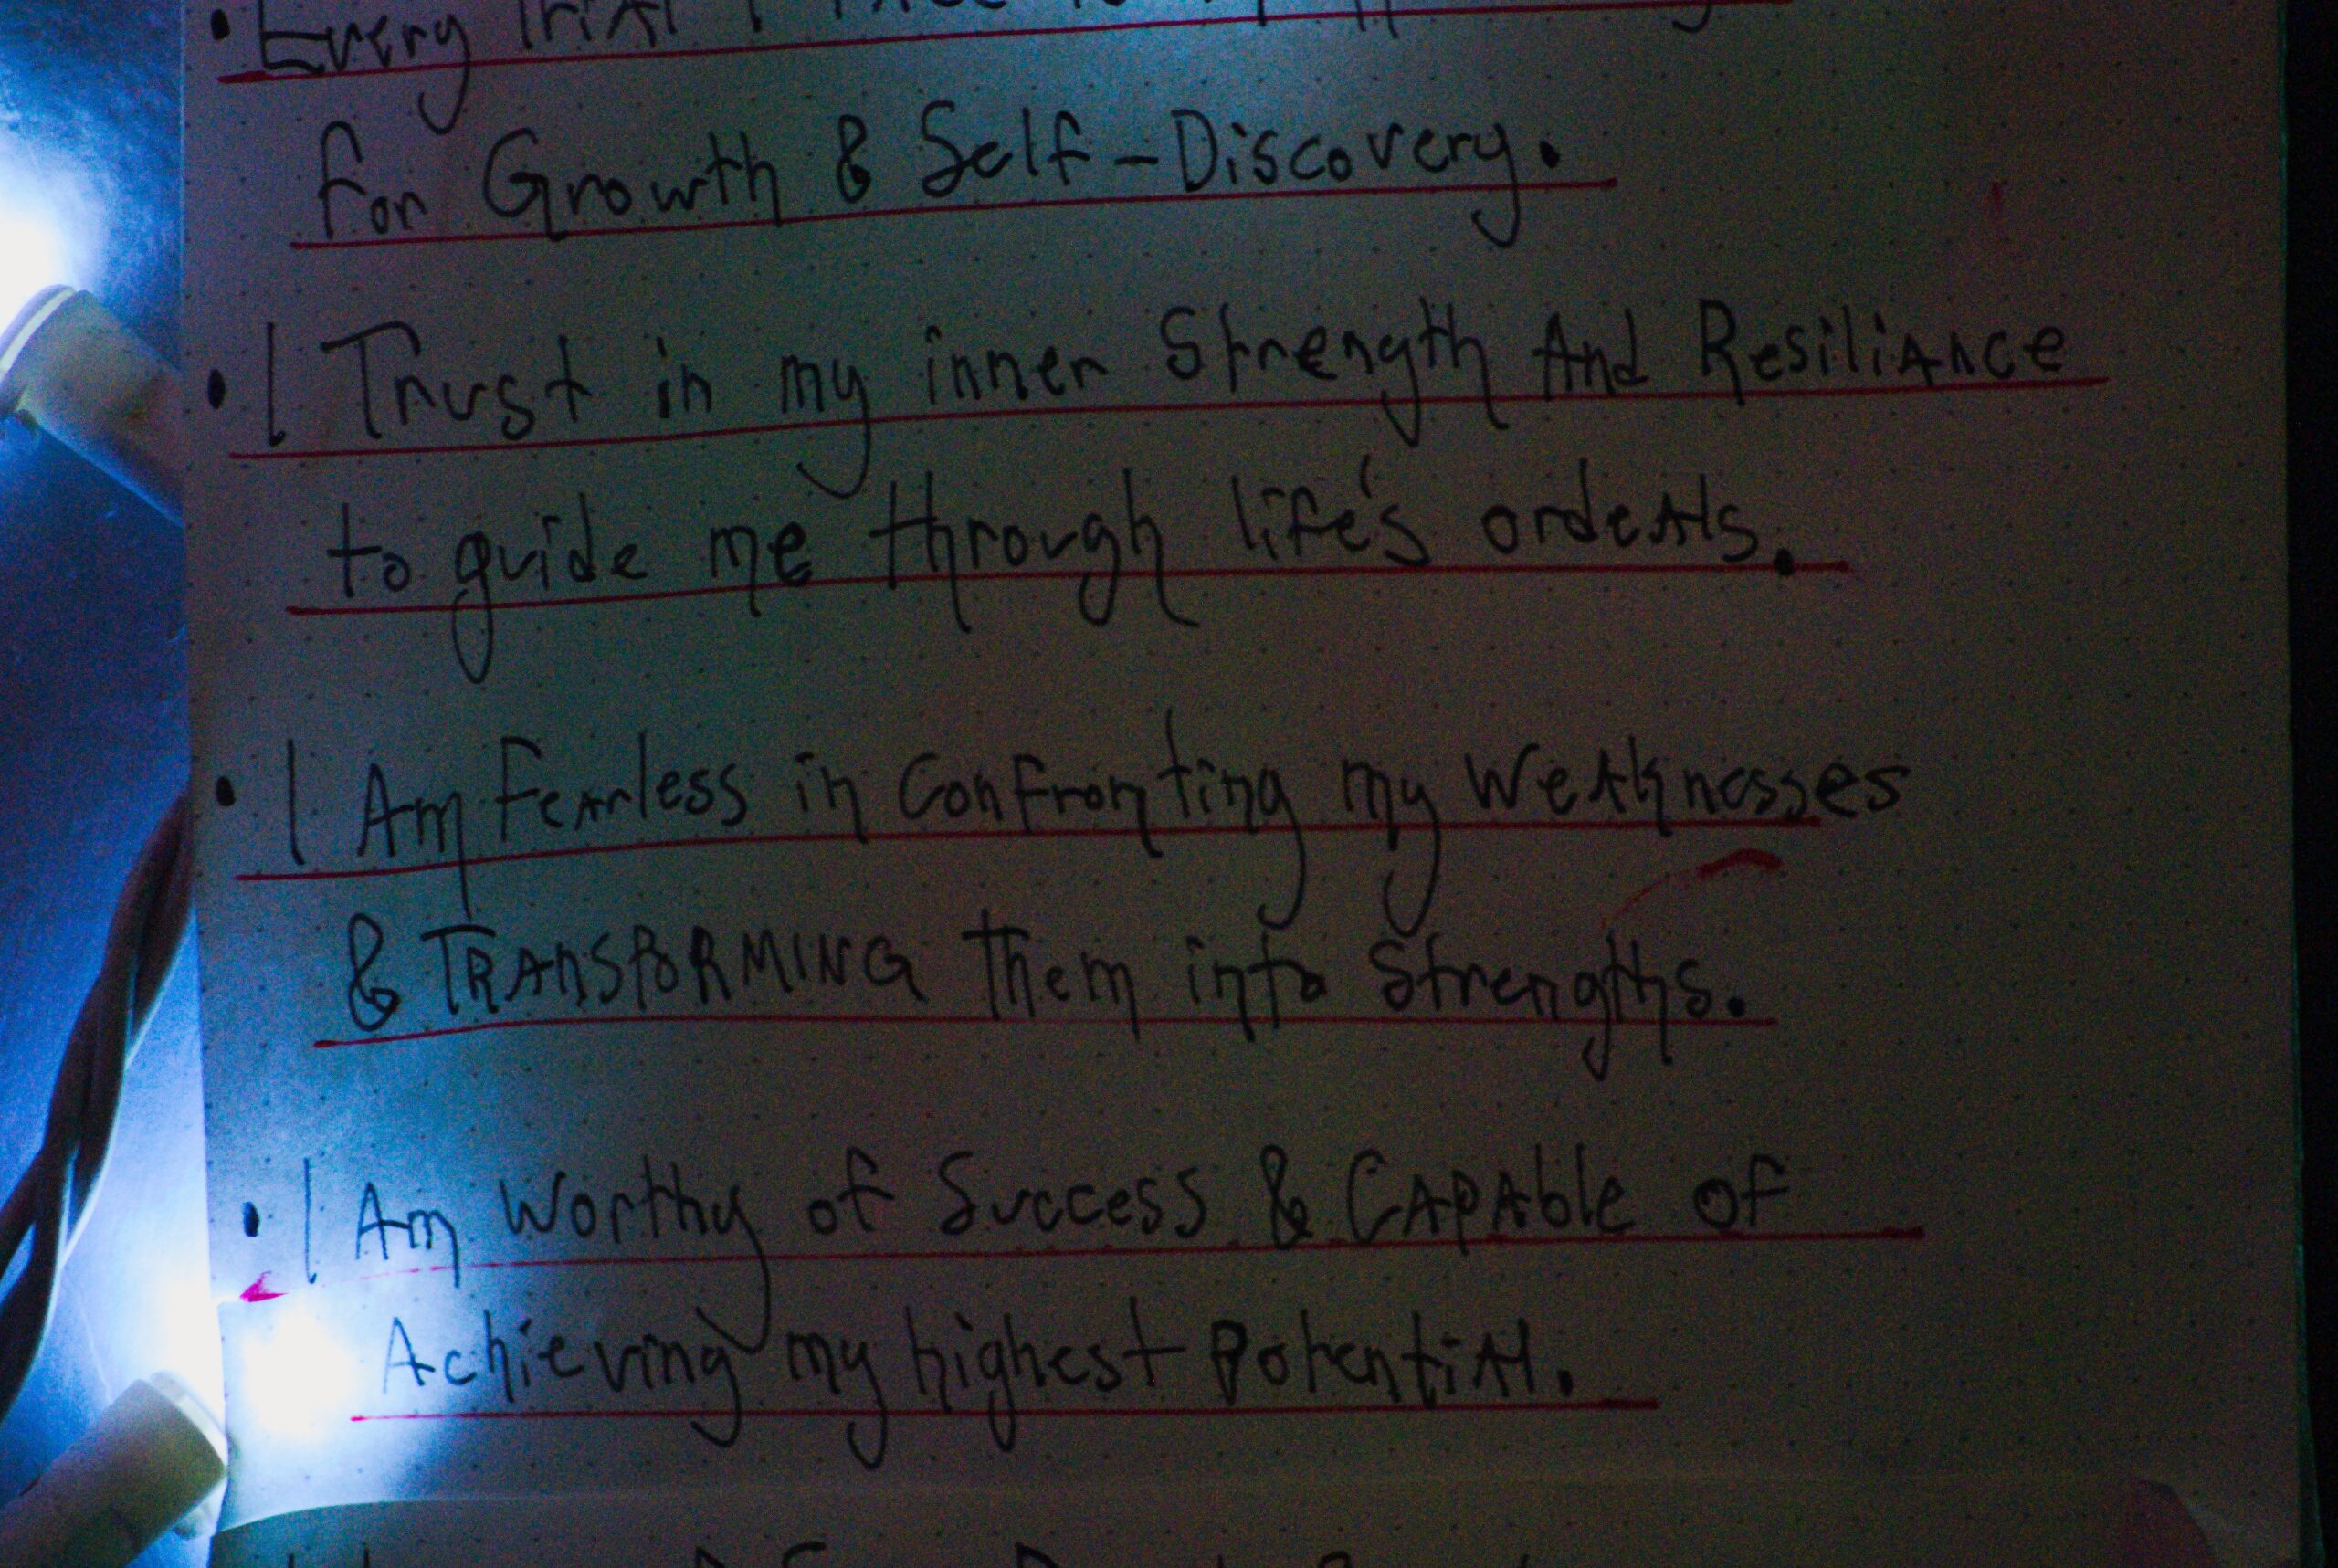 • Every Trial I Face is
for Growth & Self-Discovery.
• I Trust in my inner Strength And Resiliance
to guide me through life's ordeals.
• I Am Fearless in Confronting my Weaknesses
& TRAnSfORMING them into Strengths.
• I Am Worthy of Success & CAPAble of
Achieving my highest Potential.